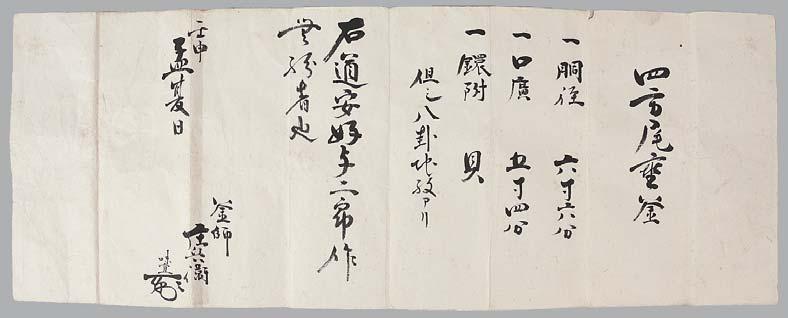 四方尾垂釜
一胴径 六寸六分
一口廣 五寸四分
一鐶附 貝
但シ八卦地紋アリ
右道安好与二郎作
無紛者也
壬申
孟夏日
釜師
庄兵衛